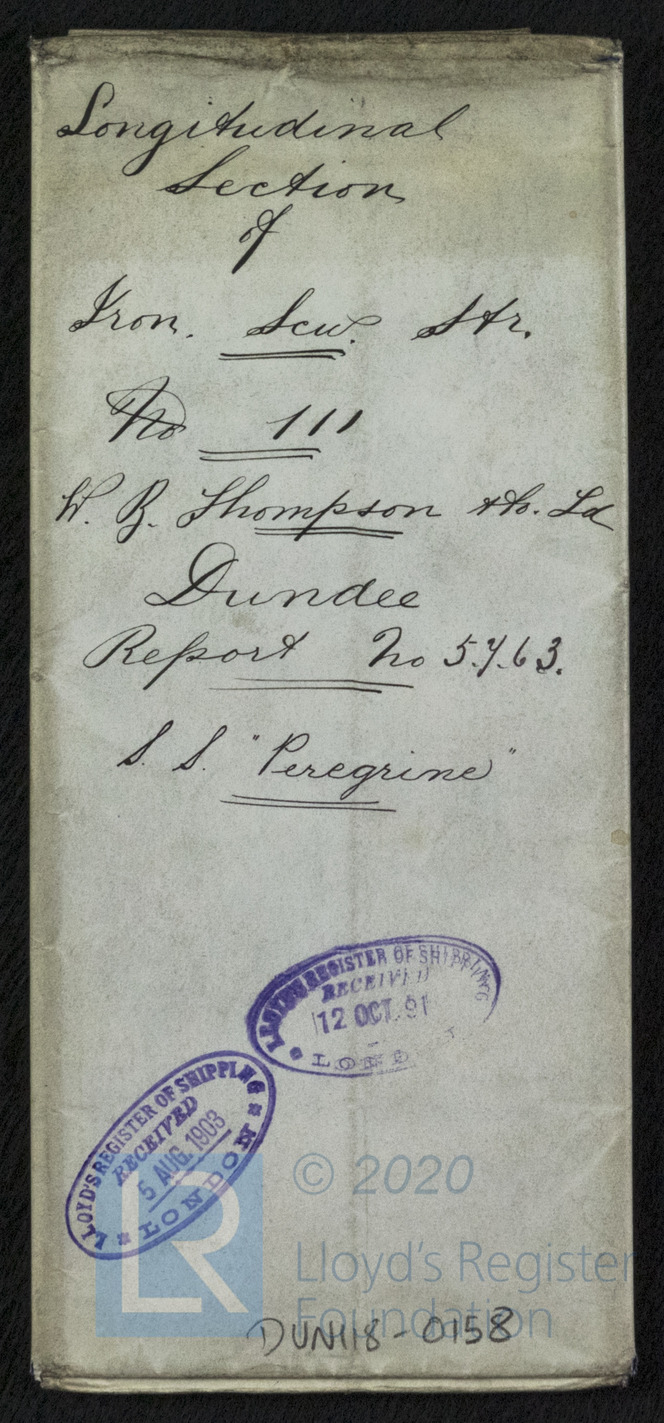 Longitudinal
Section
of
Iron. Scw. Str.
No 111
W. B. Thompson & Co. Ld
Dundee
Report No 5763.
S. S. "Peregrine"
LLOYD'S REGISTER OF SHIPPING
RECEIVED
12 OCT. 91
LONDON
LLOYD'S REGISTER OF SHIPPING
RECEIVED
5 AUG. 1903
LONDON
LR
© 2020
Lloyd's Register
Foundation
DUN118-0158